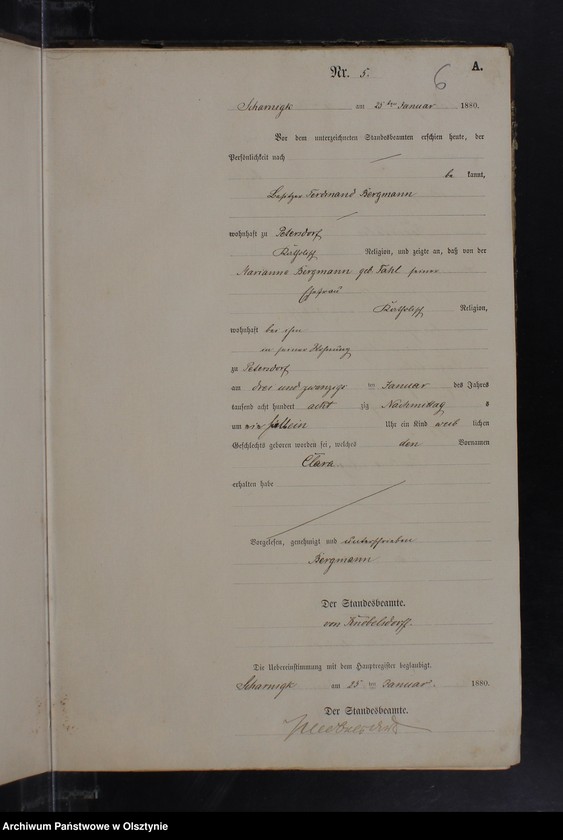 Nr. 5.
6
A.
Scharnigk am 25ten Januar 1880.
Vor dem unterzeichneten Standesbeamten erschien heute, der
Persönlichkeit nach
be kannt,
Besitzer Ferdinand Bergmann
wohnhaft zu Petersdorf
Katholisch Religion, und zeigte an, daß von der
Marianne Bergmann geb. seiner
Ehefrau
Katholisch Religion,
wohnhaft bei ihm
in seiner Wohnung
zu Petersdorf
am drei und zwanzigs ten Januar des Jahres
tausend acht hundert acht zig Nachmittag s
um Uhr ein Kind weib lichen
Geschlechts geboren worden sei, welches den Vornamen
Clara
erhalten habe
Vorgelesen, genehmigt und unterschrieben
Bergmann
Der Standesbeamte.
von Knobelsdorff.
Die Uebereinstimmung mit dem Hauptregister beglaubigt.
Scharnigk am 25 ten Januar. 1880.
Der Standesbeamte.
Archiwum Państwowe w Olsztynie